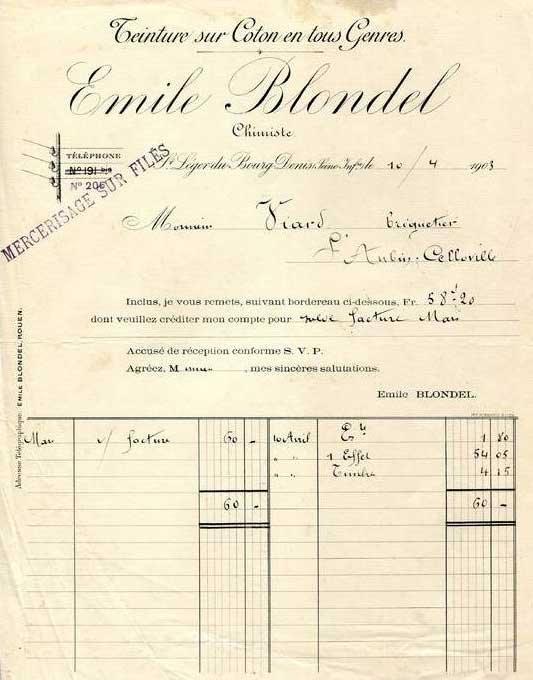 Teinture sur Coton en tous Genres.
Emile Blondel
Chimiste
TÉLÉPHONE
N° 191 bis
N° 206
MERCERISAGE SUR FILÉS
St Léger du Bourg Denis, (Seine Infre) le 10/4 1903
Monsieur Viard briquetier
St Aubin-Celloville
Inclus, je vous remets, suivant bordereau ci-dessous, Fr. 58f 20
dont veuillez créditer mon compte pour solde facture Mars
Accusé de réception conforme S. V. P.
Agréez, Monsieur, mes sincères salutations.
Emile BLONDEL.
Adresse Télégraphique: EMILE BLONDEL, ROUEN.
Mars v/ facture 60 - 10 Avril Ete 1 80
" " 1 Effet 54 05
" " Timbre 4 15
60 - 60 -